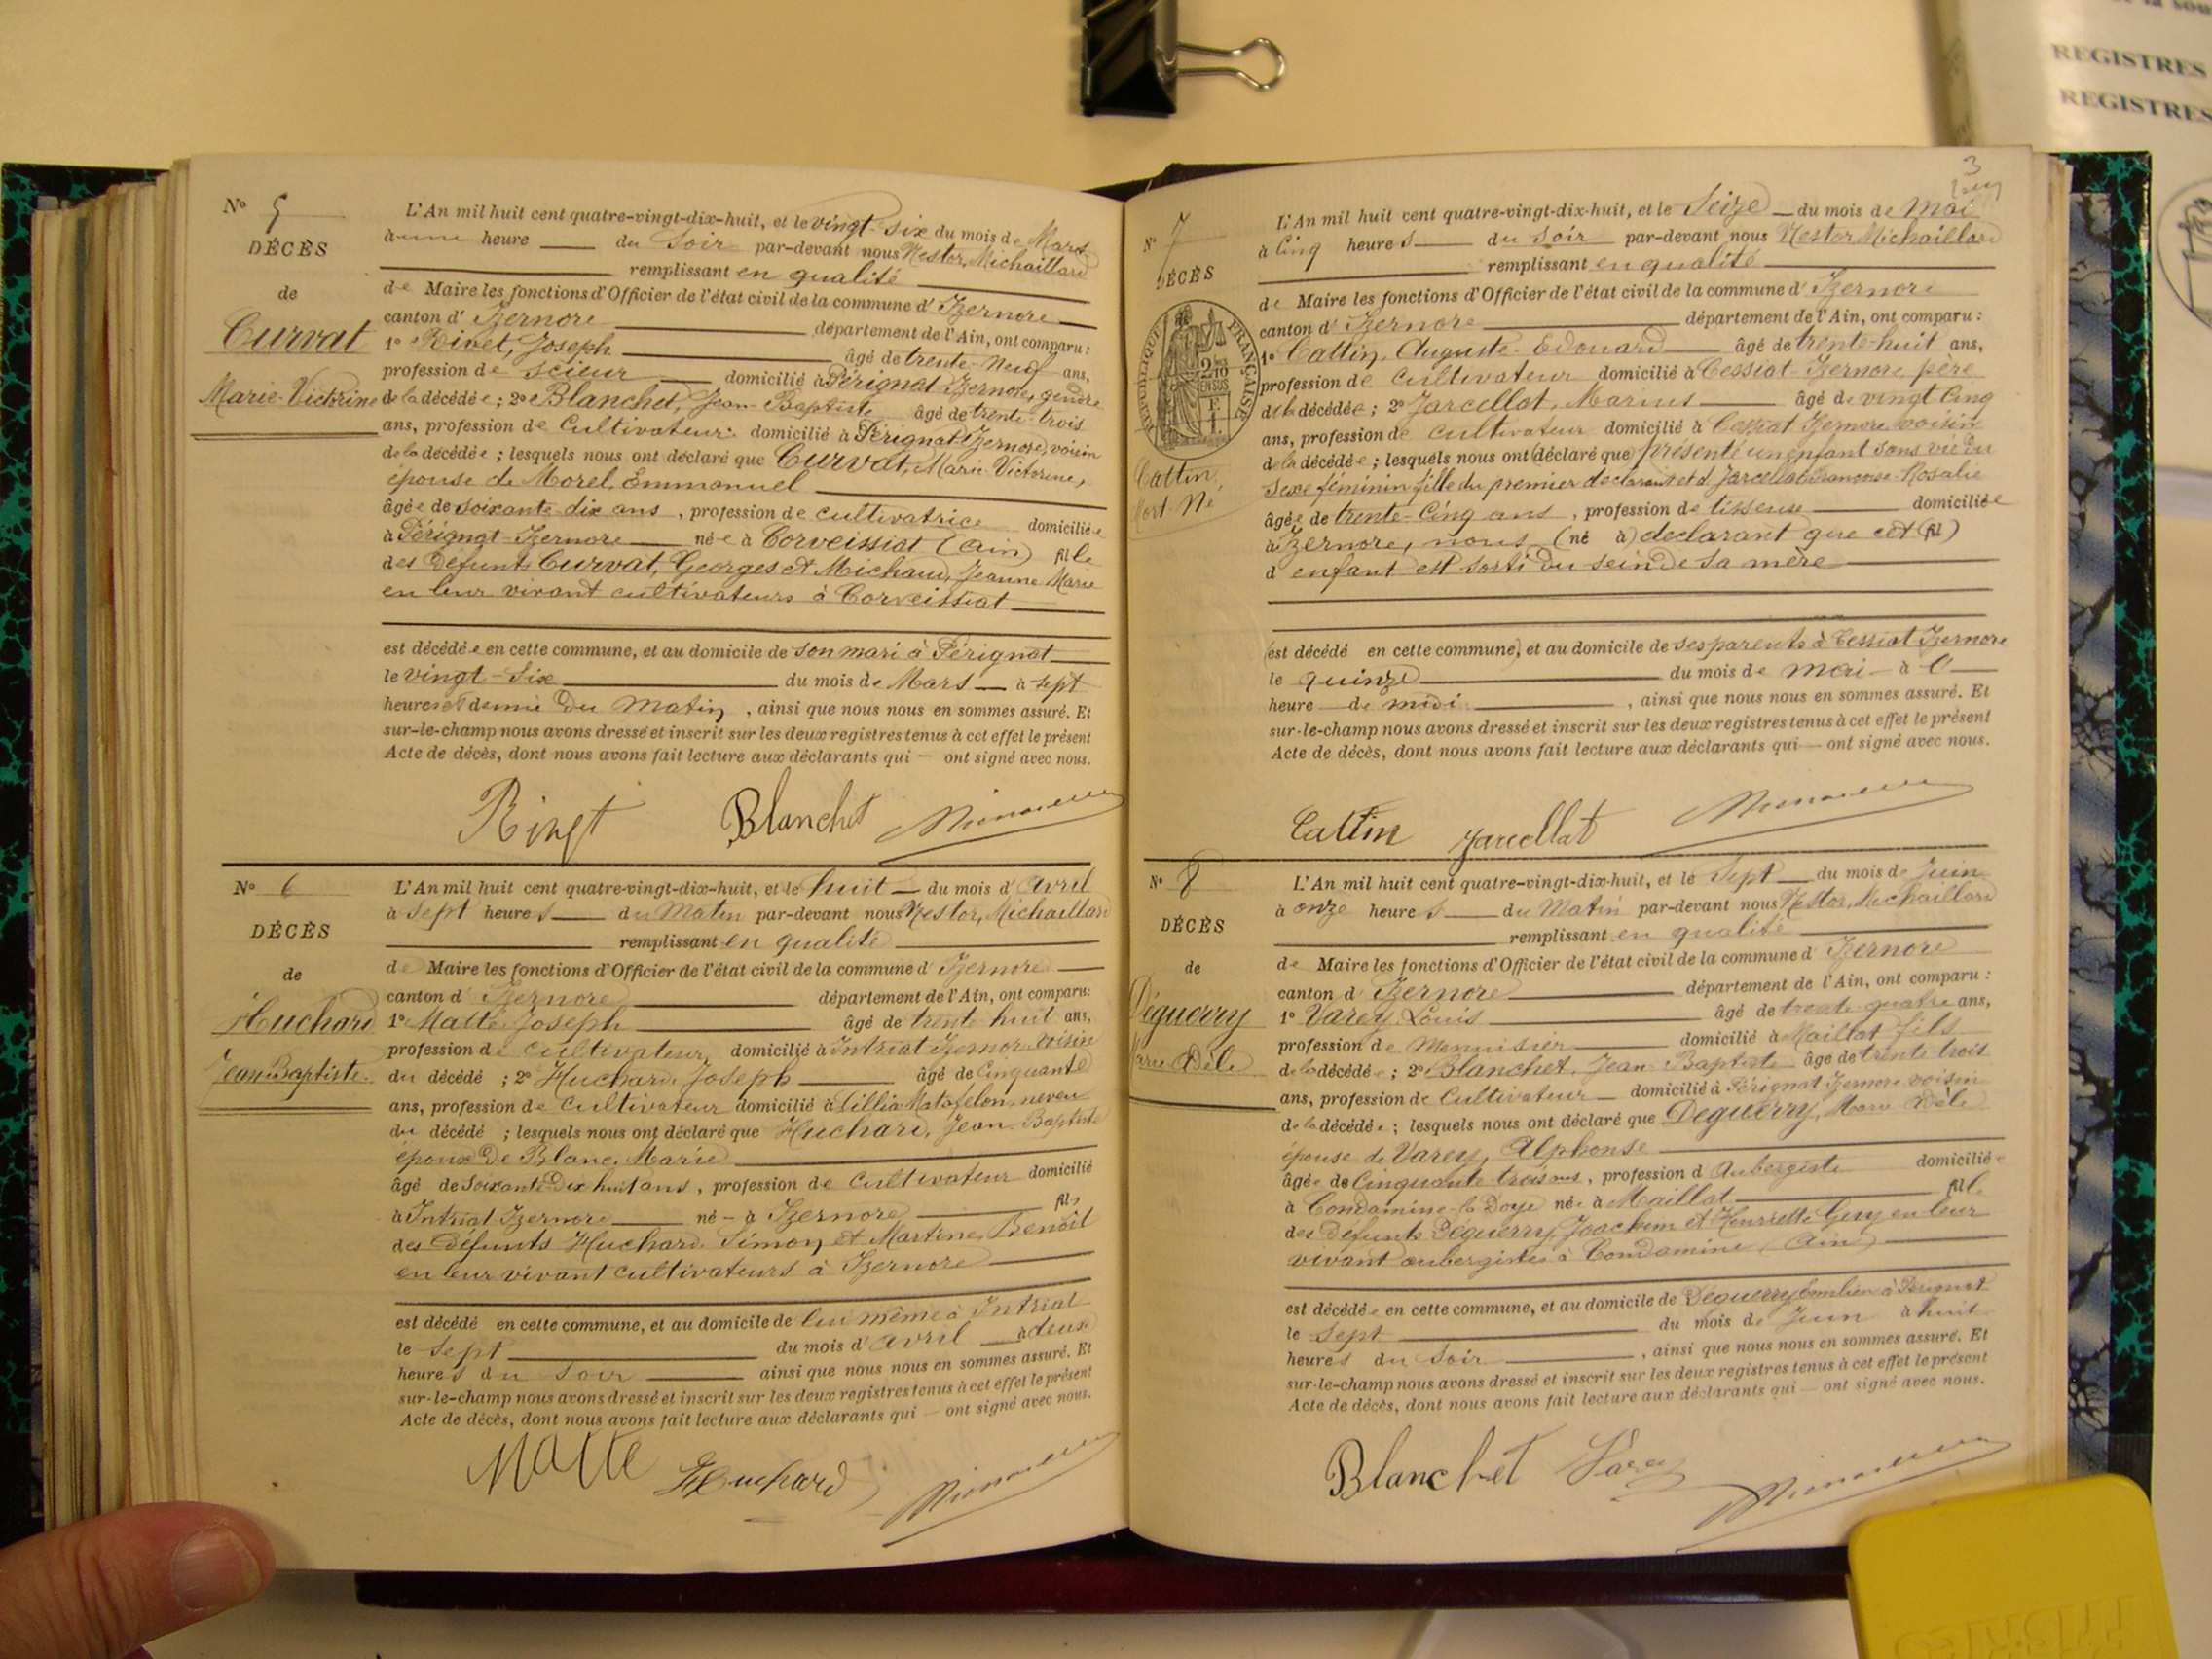 N° 5
DÉCÈS
de
Curvat
Marie-Victorine
L'An mil huit cent quatre-vingt-dix-huit, et le vingt-six du mois de Mars
à une heure du soir par-devant nous Nestor, Michaillard
remplissant en qualité
de Maire les fonctions d'Officier de l'état civil de la commune d'Izernore
canton d'Izernore département de l'Ain, ont comparu :
1° Rivet, Joseph âgé de trente-neuf ans,
profession de scieur domicilié à Pérignat-Izernore, gendre
de la décédée ; 2° Blanchet, Jean-Baptiste âgé de trente-trois
ans, profession de Cultivateur domicilié à Pérignat-Izernore, voisin
de la décédée ; lesquels nous ont déclaré que Curvat, Marie-Victorine,
épouse de Morel, Emmanuel
âgée de soixante-dix ans, profession de cultivatrice domiciliée
à Pérignat-Izernore née à Corveissiat (Ain) fille
des défunts Curvat, Georges et Michaud, Jeanne Marie
en leur vivant cultivateurs à Corveissiat
est décédée en cette commune, et au domicile de son mari à Pérignat
le vingt-six du mois de Mars à sept
heures et demie du Matin, ainsi que nous nous en sommes assuré. Et
sur-le-champ nous avons dressé et inscrit sur les deux registres tenus à cet effet le présent
Acte de décès, dont nous avons fait lecture aux déclarants qui — ont signé avec nous.
Rivet Blanchet
N° 6
DÉCÈS
de
Huchard
Jean-Baptiste
L'An mil huit cent quatre-vingt-dix-huit, et le huit du mois d'Avril
à sept heures du Matin par-devant nous Nestor, Michaillard
remplissant en qualité
de Maire les fonctions d'Officier de l'état civil de la commune d'Izernore
canton d'Izernore département de l'Ain, ont comparu :
1° Matte Joseph âgé de trente huit ans,
profession de cultivateur, domicilié à Intriat Izernore voisin
du décédé ; 2° Huchard Joseph âgé de Cinquante
ans, profession de cultivateur domicilié à Sillia Matafelon neveu
du décédé ; lesquels nous ont déclaré que Huchard, Jean-Baptiste
époux de Blanc, Marie
âgé de soixante-dix huit ans, profession de cultivateur domicilié
à Intriat Izernore né à Izernore fils
des défunts Huchard Simon et Martine Benoît
en leur vivant cultivateurs à Izernore
est décédé en cette commune, et au domicile de lui même à Intriat
le sept du mois d'avril à deux
heures du soir ainsi que nous nous en sommes assuré. Et
sur-le-champ nous avons dressé et inscrit sur les deux registres tenus à cet effet le présent
Acte de décès, dont nous avons fait lecture aux déclarants qui — ont signé avec nous.
Matte Huchard
3
N° 7
DÉCÈS
RÉPUBLIQUE FRANÇAISE
2/10 EN SUS
Cattin
Mort-Né
L'An mil huit cent quatre-vingt-dix-huit, et le Seize du mois de Mai
à Cinq heures du soir par-devant nous Nestor Michaillard
remplissant en qualité
de Maire les fonctions d'Officier de l'état civil de la commune d'Izernore
canton d'Izernore département de l'Ain, ont comparu :
1° Cattin, Auguste Edouard âgé de trente-huit ans,
profession de cultivateur domicilié à Cessiat-Izernore père
de la décédée ; 2° Jarcellat, Marius âgé de vingt Cinq
ans, profession de cultivateur domicilié à Cessiat Izernore voisin
de la décédée ; lesquels nous ont (déclaré que) présenté un enfant sans vie du
sexe féminin fille du premier déclarant et d Jarcellat Françoise-Rosalie
âgée de trente-Cinq ans, profession de tisseuse domiciliée
à Izernore, nous (né à) declarant que cet (fil)
d enfant est sorti du sein de sa mère
(est décédé en cette commune), et au domicile de ses parents à Cessiat Izernore
le quinze du mois de mai à 0
heure de midi, ainsi que nous nous en sommes assuré. Et
sur-le-champ nous avons dressé et inscrit sur les deux registres tenus à cet effet le présent
Acte de décès, dont nous avons fait lecture aux déclarants qui — ont signé avec nous.
Cattin Jarcellat
N° 8
DÉCÈS
de
Déguerry
Marie Adèle
L'An mil huit cent quatre-vingt-dix-huit, et le Sept du mois de Juin
à onze heures du Matin par-devant nous Nestor, Michaillard
remplissant en qualité
de Maire les fonctions d'Officier de l'état civil de la commune d'Izernore
canton d'Izernore département de l'Ain, ont comparu :
1° Varey, Louis âgé de trente-quatre ans,
profession de Menuisier domicilié à Maillat fils
de la décédée ; 2° Blanchet, Jean-Baptiste âgé de trente trois
ans, profession de Cultivateur domicilié à Pérignat Izernore voisin
de la décédée ; lesquels nous ont déclaré que Deguerry, Marie Adèle
épouse de Varey, Alphonse
âgée de Cinquante trois ans, profession d Aubergiste domiciliée
à Condamine-la-Doye née à Maillat fille
des défunts Déguerry, Joachim et Henriette Guy en leur
vivant aubergistes à Condamine (Ain)
est décédée en cette commune, et au domicile de Deguerry Emilien à Pérignat
le sept du mois de Juin à huit
heures du soir, ainsi que nous nous en sommes assuré. Et
sur-le-champ nous avons dressé et inscrit sur les deux registres tenus à cet effet le présent
Acte de décès, dont nous avons fait lecture aux déclarants qui — ont signé avec nous.
Blanchet Varey
REGISTRES
REGISTRES